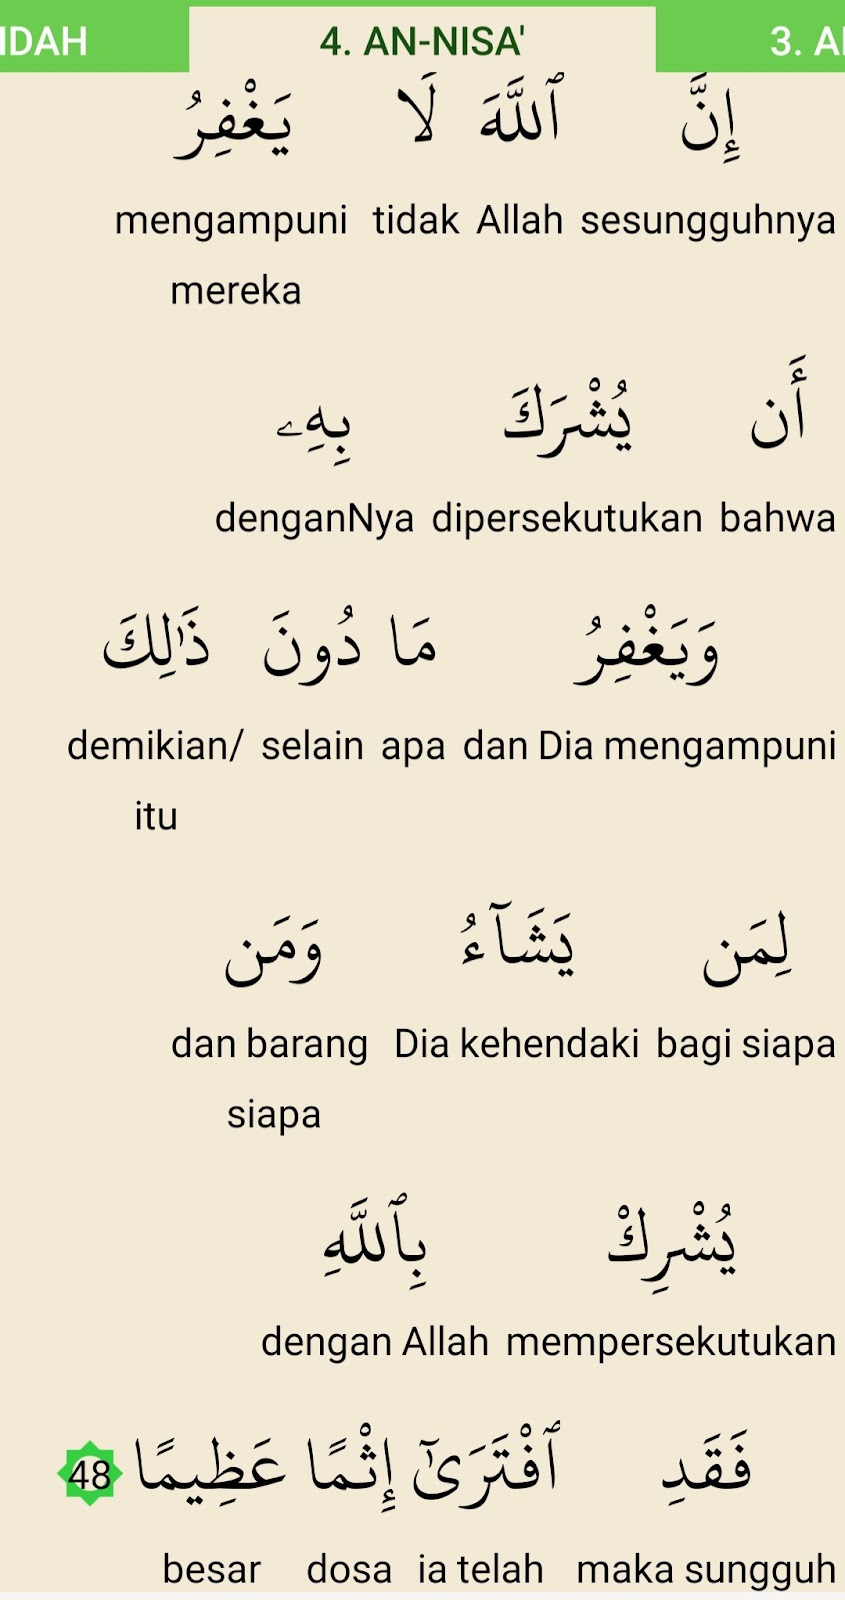 IDAH 4. AN-NISA' 3. A
إِنَّ ٱللَّهَ لَا يَغْفِرُ
mengampuni tidak Allah sesungguhnya
mereka
أَن يُشْرَكَ بِهِۦ
denganNya dipersekutukan bahwa
وَيَغْفِرُ مَا دُونَ ذَٰلِكَ
demikian/ selain apa dan Dia mengampuni
itu
لِمَن يَشَآءُ وَمَن
dan barang Dia kehendaki bagi siapa
siapa
يُشْرِكْ بِٱللَّهِ
dengan Allah mempersekutukan
فَقَدِ ٱفْتَرَىٰٓ إِثْمًا عَظِيمًا 48
besar dosa ia telah maka sungguh